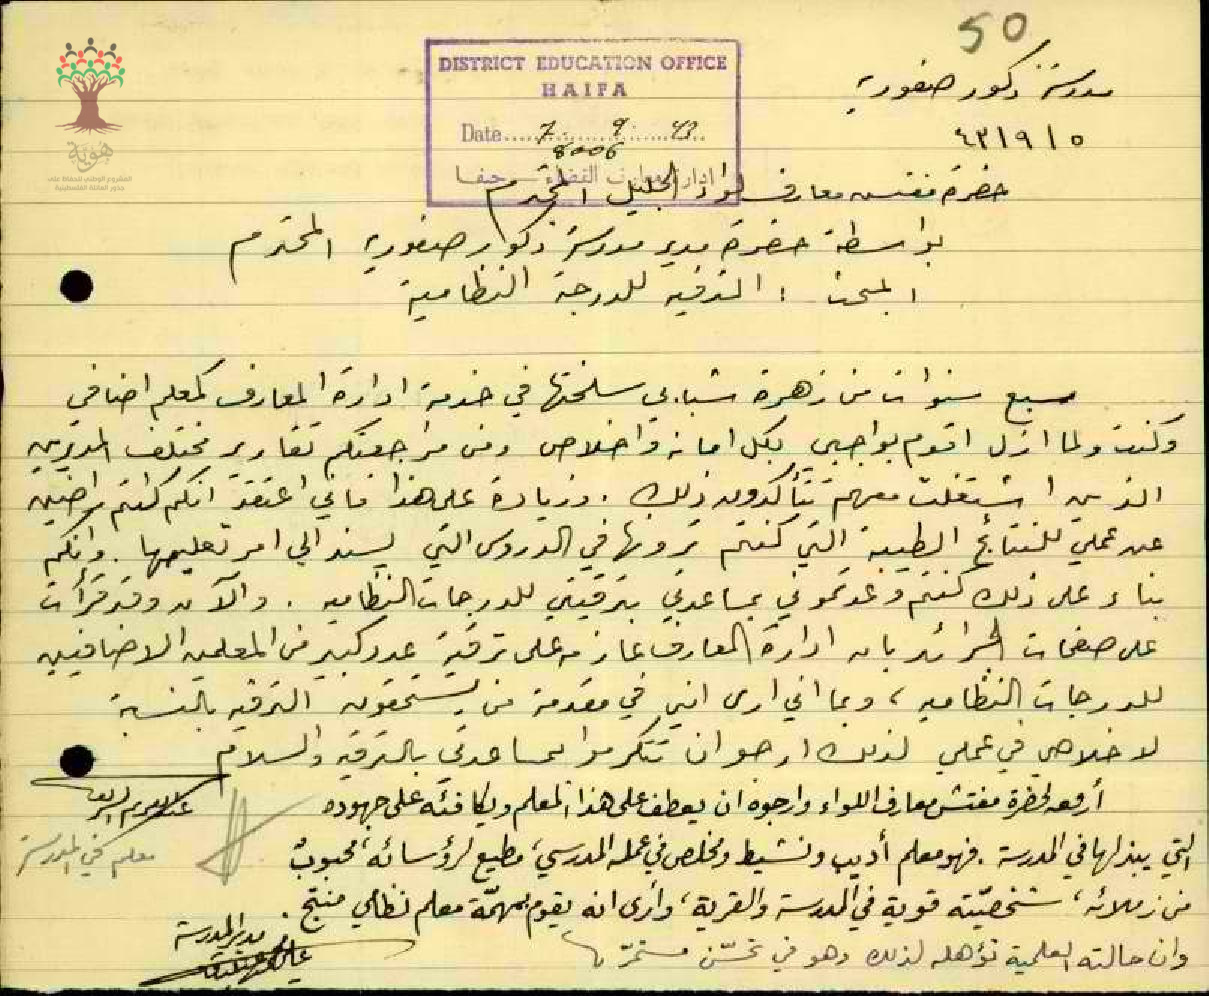 50
هوية
المشروع الوطني للحفاظ على
جذور العائلة الفلسطينية
DISTRICT EDUCATION OFFICE
HAIFA
Date 7. 9. 43
8006
ادارة معارف القضاء – حيفا
مدرسة ذكور صفورية
٤٣/٩/٥
حضرة مفتش معارف لواء الجليل المحترم
بواسطة حضرة مدير مدرسة ذكور صفورية المحترم
المبحث : الترقيه للدرجة النظامية
سبع سنوات من زهرة شبابي سلختها في خدمة ادارة المعارف كمعلم اضافي
وكنت ولما ازل اقوم بواجبي بكل امانه واخلاص ومن مراجعتكم تقارير مختلف المديرين
الذين اشتغلت معهم تتأكدون ذلك . وزيادة على هذا فاني اعتقد انكم كنتم راضين
عن عملي للنتائج الطيبة التي كنتم ترونها في الدروس التي يسند الي امر تعليمها . وانكم
بناء على ذلك كنتم وعدتموني بمساعدتي بترقيتي للدرجات النظاميه . والآن وقد قرأت
على صفحات الجرائد بان ادارة المعارف عازمه على ترقية عدد كبير من المعلمين الاضافيين
للدرجات النظاميه ، وبما اني ارى انني في مقدمة من يستحقون الترقيه بالنسبة
لاخلاصي في عملي لذلك ارجو ان تتكرموا بمساعدتي بالترقيه والسلام
معلم في المدرسة
أرفعه لحضرة مفتش معارف اللواء وارجوه ان يعطف على هذا المعلم ويكافئه على جهوده
التي يبذلها في المدرسة . فهو معلم أديب ونشيط ومخلص في عمله المدرسي، مطيع لرؤسائه، محبوب
من زملائه، شخصيّته قوية في المدرسة والقرية، وأرى انه يقوم بمهمّة معلم نظامي منتج .
وان حالته العلمية تؤهله لذلك وهو في تحسّن مستمرّ
مدير المدرسة